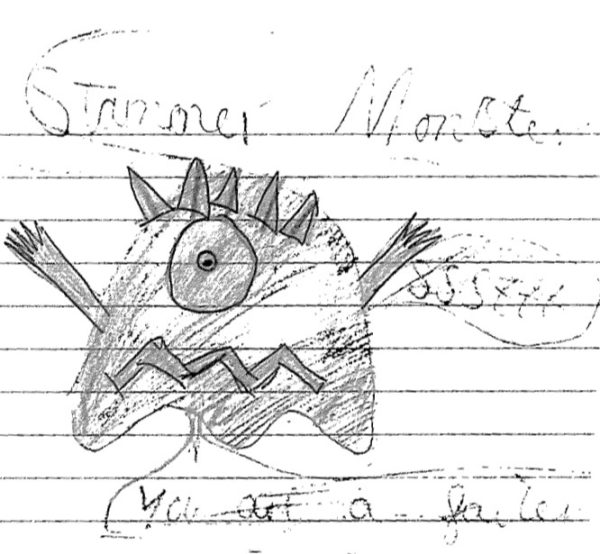 Stammer Monster
SSSttt
You are a